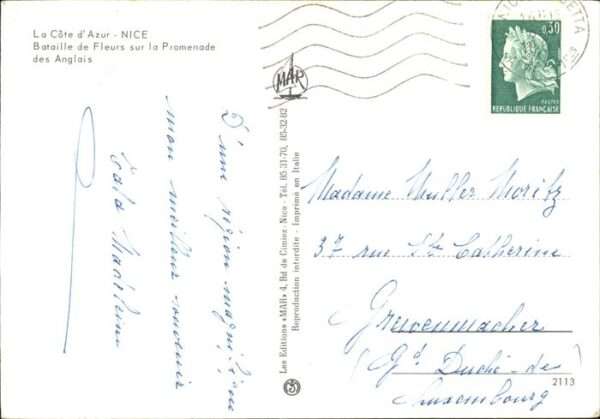 La Côte d'Azur - NICE
Bataille de Fleurs sur la Promenade
des Anglais
D'une région magnifique
mon meilleur souvenir
MAR
Les Editions «MAR» 4, Bd de Cimiez - Nice - Tél. 85-31-70, 85-32-82
Reproduction interdite - Imprimé en Italie
0,30
REPUBLIQUE FRANCAISE
Madame Muller Moritz
37 rue Ste Catherine
Grevenmacher
(Gd Duché-de
Luxembourg)
2113